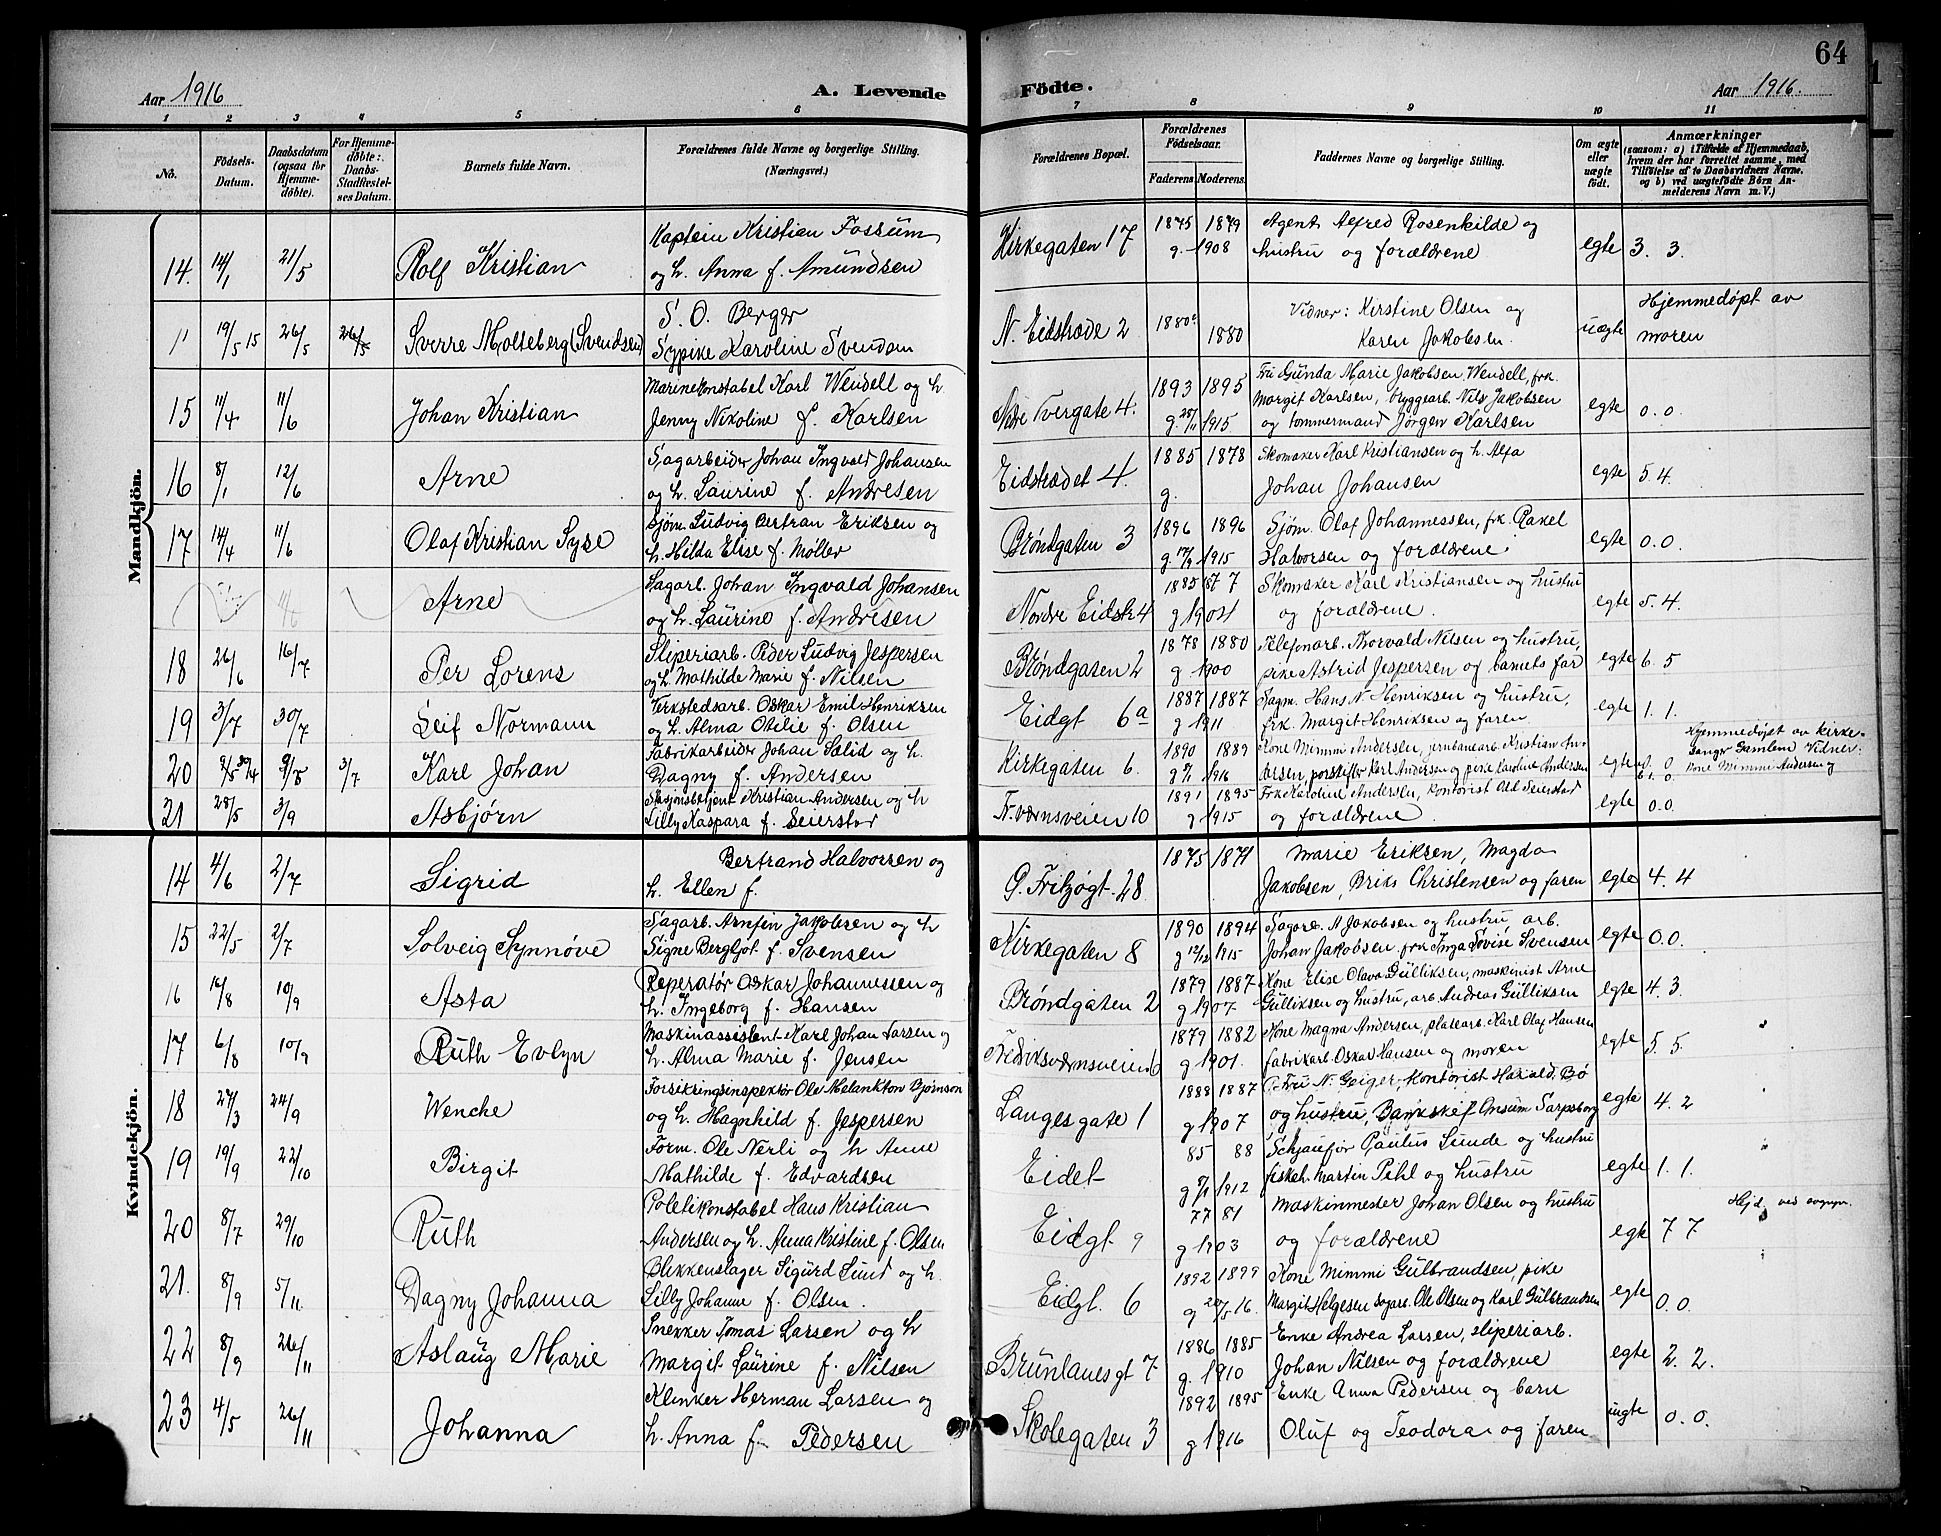 64
Aar 1916
A. Levende Födte.
Aar 1916.
1 2 3 4 5 6 7 8 9 10 11
No.
Födsels-Datum.
Daabsdatum (ogsaa for Hjemmedöbte).
For Hjemmedöbte: Daabs-Stadfæstelses Datum.
Barnets fulde Navn.
Forældrenes fulde Navne og borgerlige Stilling.
(Næringsvei.)
Forældrenes Bopæl.
Forældrenes Födselsaar.
Faderens. Moderens.
Faddernes Navne og borgerlige Stilling.
Om ægte eller uægte födt.
Anmærkninger
(saasom: a) i Tilfælde af Hjemmedaab, hvem der har forrettet samme, med Tilföielse af to Daabsvidners Navne. og b) ved uægtefödte Börn Anmelderens Navn m. V.)
Mandkjön.
14. 14/1 21/5 Rolf Kristian
Kaptein Kristian Fossum
og h. Anna f. Amundsen
Kirkegaten 17 1875 1879 g. 1908
Agent Alfred Rosenkilde og
hustru og forældrene
egte 3. 3.
" 19/5 15 26/5 26/5 Sverre Molteberg (Svendsen)
S. O. Berger
Sypike Karoline Svendsen
N. Eidstræde 2 1880 1880
Vidner: Kirstine Olsen og
Karen Jakobsen.
uægte
Hjemmedøpt av
moren
15 11/4 11/6 Johan Kristian
Marinekonstabel Karl Wendell og h.
Jenny Nikoline f. Karlsen
Nedre Tvergate 4. 1893 1895 g. 25/11 1915
Fru Gunda Marie Jakobsen Wendell, frk.
Margit Karlsen, bryggearb. Nils Jakobsen
og tommermand Jørgen Karlsen
egte 0. 0.
16 8/1 12/6 Arne
Sagarbeider Johan Ingvald Johansen
og h. Laurine f. Andresen
Eidstrædet 4. 1885 1878 g.
Skomaker Karl Kristiansen og h. Alfa
Johan Johansen
egte 5. 4.
17 14/4 11/6 Olaf Kristian
Sjøm. Ludvig Bertran Eriksen og
h. Hilda Elise f. Møller
Brøndgaten 3 1896 1896 g. 1915
Sjøm. Olaf Johannessen, frk. Rakel
Halvorsen og forældrene
egte 0. 0.
Arne
Sagarb. Johan Ingvald Johansen
og h. Laurine f. Andresen
Nordre Eidstr 4 1885 g 1904
Skomaker Karl Kristiansen og hustru
og forældrene.
egte 5. 4.
18 26/6 16/7 Per Lorens
Sliperiarb. Peder Ludvig Jespersen
og h. Mathilde Marie f. Nilsen
Brøndgaten 2 1878 1880 g 1900
Telefonarb. Thorvald Nilsen og hustru,
pike Astrid Jespersen og barnets far
egte 6. 5
19 3/7 30/7 Leif Normann
Verkstedsarb. Oskar Emil Henriksen
og h. Alma Otilie f. Olsen
Eidgt 6a 1887 1887 g 1911
Sagm. Hans N. Henriksen og hustru,
frk. Margit Henriksen og faren
egte 1. 1.
20 3/7 Karl Johan
Fabrikarbeider Johan Salid og h.
Dagny f. Andersen
Kirkegaten 6. 1890 1889 1916
Kone Mimmi Andersen, jernbanearb. Kristian
Karl Andersen og pike Karoline Andersen
egte 0. 0
Hjemmedøpt av kirke-
sanger Gamlem Vidner:
Kone Mimmi Andersen og
21 28/5 3/9 Asbjørn
Stasjonsbetjent Kristian Andersen og h
Lilly Kaspara f. Seierstad
Fr.værnsveien 10 1891 1895 g 1915
Frk Karoline Andersen, Kontorist Seierstad
og forældrene.
egte 0. 0.
Kvindekjön.
14 4/6 2/7 Sigrid
Bertrand Halvorsen og
h. Ellen f.
G. Fritzøgt. 28 1875 1871
Marie Eriksen, Magda
Jakobsen, Christensen og faren
egte 4. 4
15 22/5 2/7 Solveig Synnøve
Sagarb. Arnfin Jakobsen og h
Signe Bergljot f. Svensen
Kirkegaten 8 1890 1894 g 12/12 1915
Sagarb. A Jakobsen og hustru, arb.
Johan Jakobsen frk Inga Lovise Svensen
egte 0. 0.
16 16/8 10/9 Asta
Reperatør Oskar Johannessen og
h. Ingeborg f. Hansen
Brøndgaten 2 1879 1887 g 1907
Kone Elise Olava Gulliksen, maskinist Arne
Gulliksen og hustru, arb. Andreas Gulliksen
egte 4. 3.
17 6/8 10/9 Ruth Evlyn
Maskinassistent Karl Johan Larsen og
h. Alma Marie f. Jensen
Fredriksværnsveien 6 1879 1882 g 1901
Kone Magna Andersen, platearb. Karl Olaf Hansen
fabrikarb. Oskar Hansen og moren
egte 5. 5.
18 27/3 24/9 Wenche
Forsikringsinspektør Ole Melankton Bjørnson
og h. Magnhild f. Jespersen
Langes gate 1 1888 1887 g 1907
Fru N. Geiger, Kontorist Harald Bø
og hustru, Ansum Sarpsborg
egte 4. 2
19 19/9 22/10 Birgit
Form. Ole Nerli og h Anne
Mathilde f. Edvardsen
Eidet 85 88 1912
Schjaufør Paulus Lunde og hustru
fiskeh. Martin Pihl og hustru
egte 1. 1.
20 8/7 29/10 Ruth
Politikonstabel Hans Kristian
Andersen og h. Anna Kristine f. Olsen
Eidgt 9 77 81 g 1903
Maskinmester Johan Olsen og hustru
og forældrene
egte 7 7
Hejd. ved sogepr.
21. 8/9 5/11 Dagny Johanna
Blikkenslager Sigurd Lund og h.
Lilly Johanne f. Olsen.
Eidgt. 6 1892 1899 g 20/5 16.
Kone Mimmi Gulbrandsen, pike
Margit Helgesen sagarb. Ole Olsen og Karl Gulbrandsen
egte 0. 0.
22 8/9 26/11 Aslaug Marie
Snekker Tomas Larsen og h
Margit Laurine f. Nilsen
Brunlanesgt 7 1886 1885 g. 1910
Enke Andrea Larsen, sliperiarb.
Johan Nilsen og forældrene
egte 2. 2.
23 4/5 26/11 Johanna
Klinker Herman Larsen og
h. Anna f. Pedersen
Skolegaten 3 1892 1895 g 1916
Enke Anna Pedersen og barn
Oluf og Teodora og faren
uegte 0. 0.